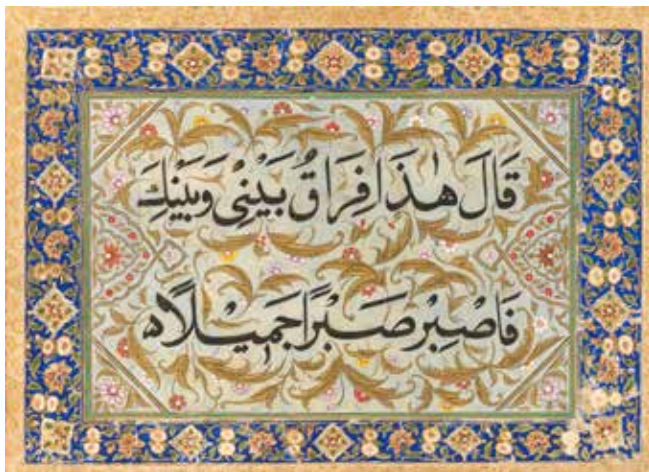 قَالَ هٰذَا فِرَاقُ بَيْنِىْ وَبَيْنِكَ
فَاصْبِرْ صَبْرًا جَمِيْلًا